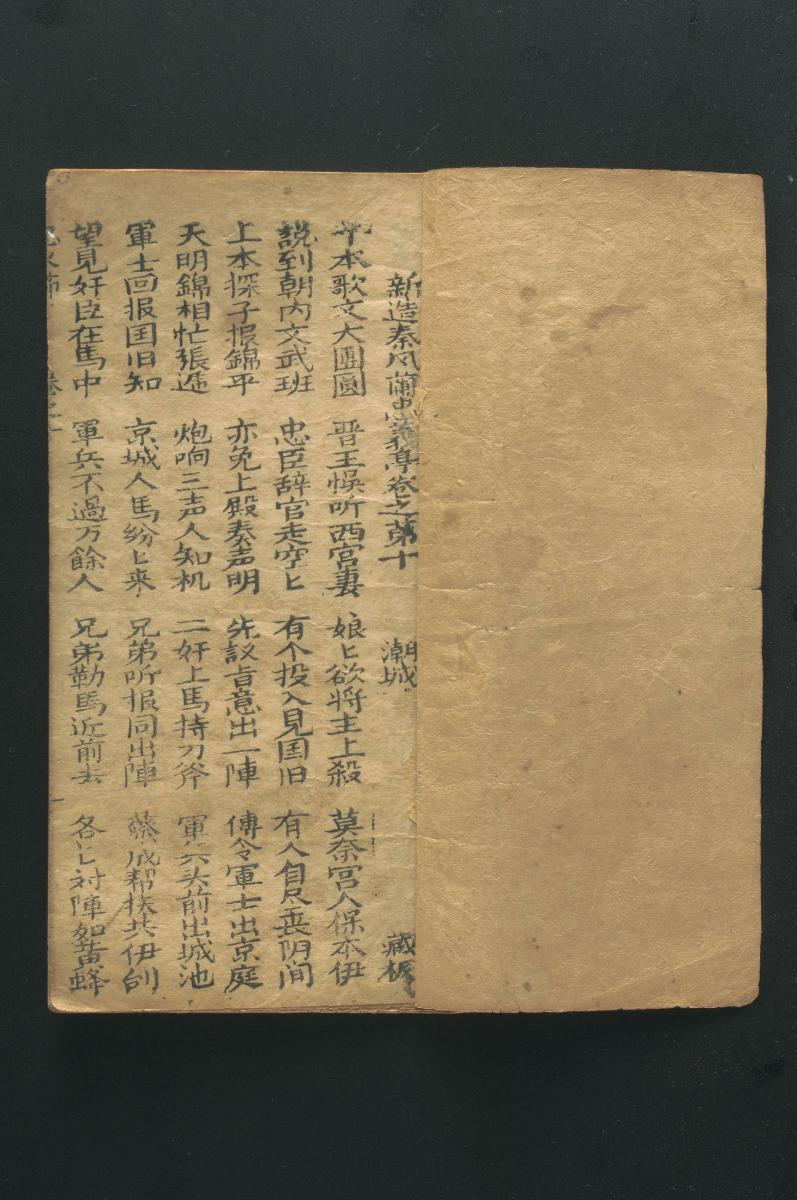 新造秦凤蘭忠義亭卷之第十 潮城 藏板
本歌文大團圓 晋王悞听西宫妻 娘〻欲将主上殺 莫奈宫人保本伊
説到朝内文武班 忠臣辞官走空〻 有个投入見国旧 有人自尽丧阴间
上本探子报錦平 亦免上殿奏声明 先議旨意出一陣 傅令軍士出京庭
天明錦相忙張遲 炮响三声人知机 二奸上馬持刀斧 軍兵头前出城池
軍士回报国旧知 京城人馬纷〻来 兄弟听报同出陣 蔡成帮扶共伊刣
望見奸臣在馬中 軍兵不過万餘人 兄弟勒馬近前去 各〻対陣如黄蜂